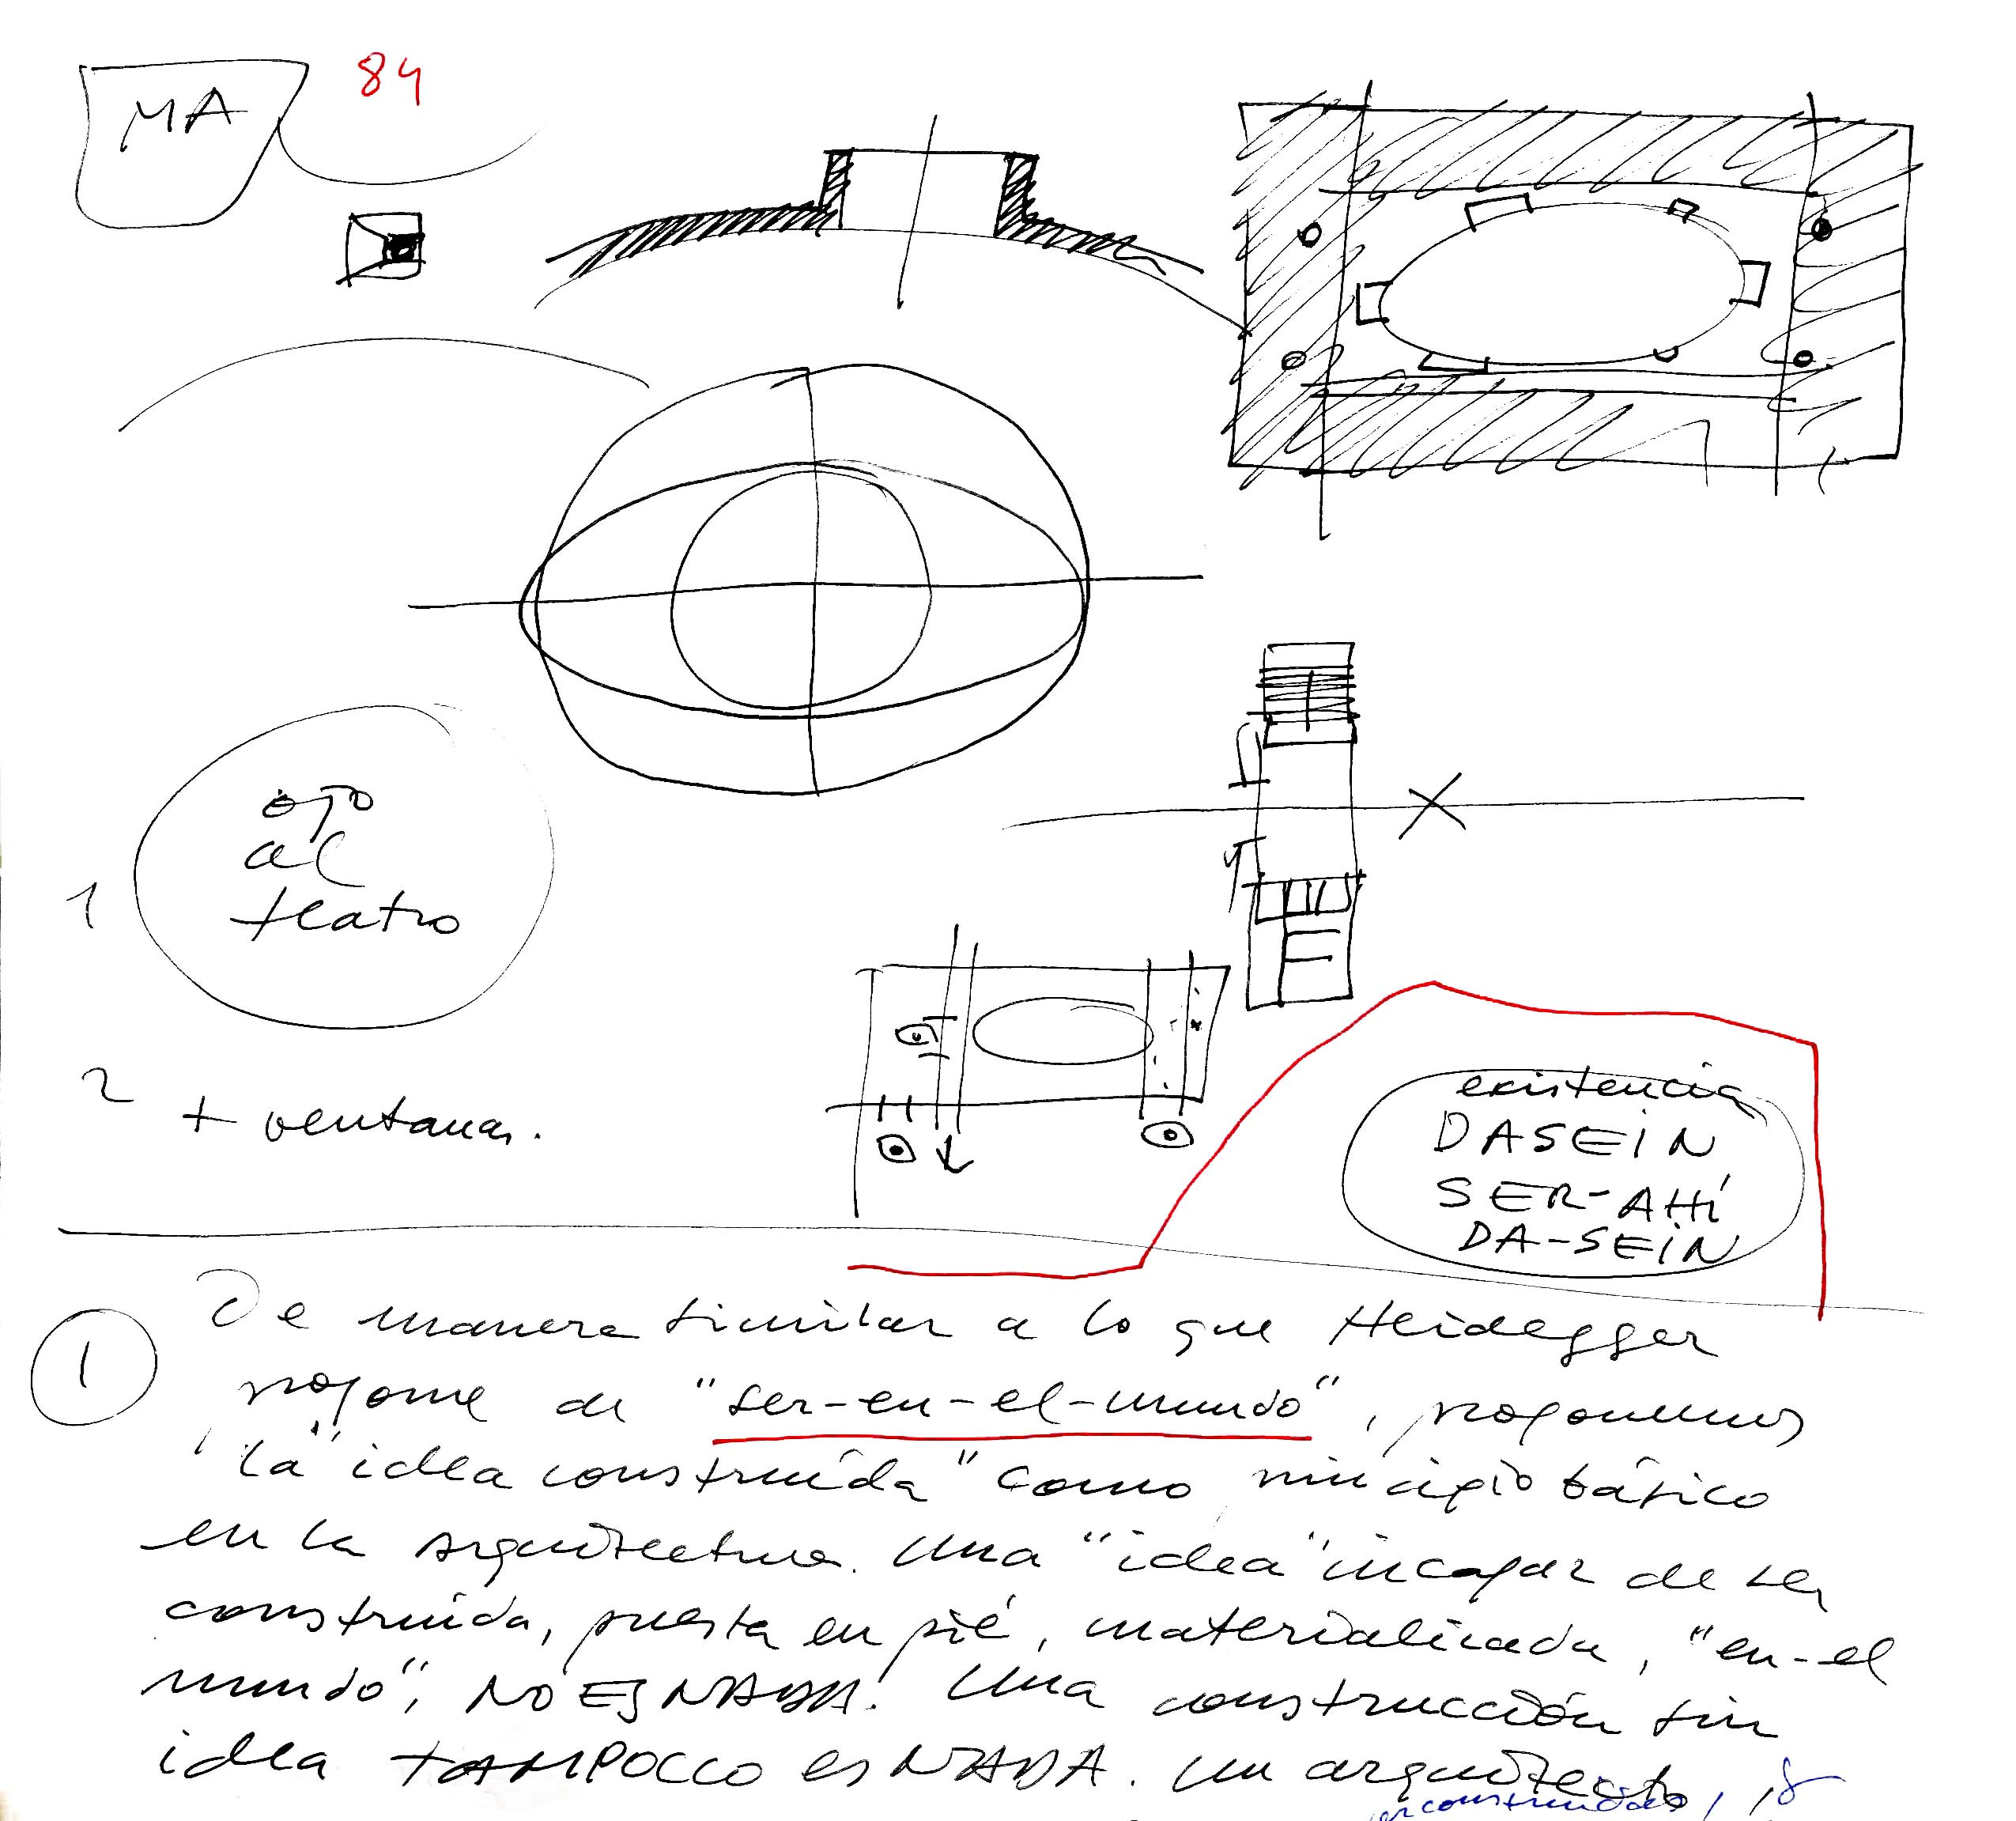 MA
84
1
ojo
al
teatro
2
+ ventanas.
existencia
DASEIN
SER-AHÍ
DA-SEIN
1
De manera similar a lo que Heidegger
propone de "ser-en-el-mundo", proponemos
"la "idea construída" como principio básico
en la arquitectura. Una "idea" incapaz de ser
construída, puesta en pié, materializada, "en-el
mundo", NO ES NADA. Una construcción sin
idea TAMPOCCO es NADA. Un arquitecto,